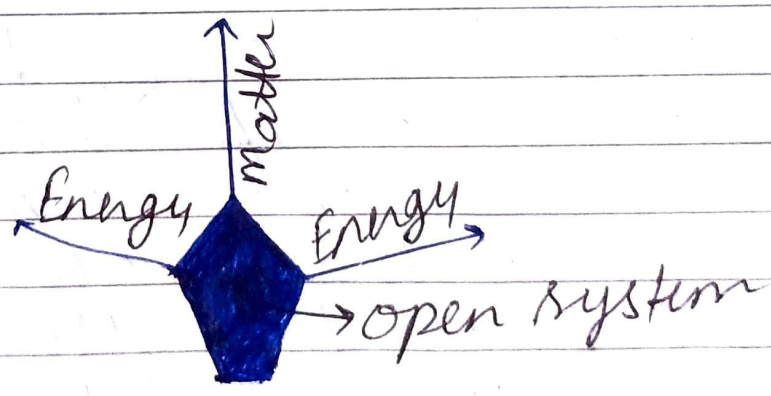 Matter
Energy
Energy
open system